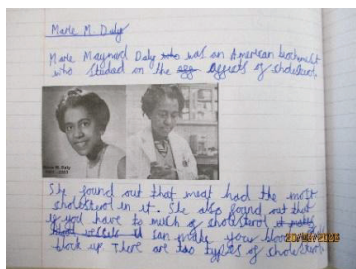 Marie M. Daly
Marie Maynard Daly was an American biochemist
who studed on the effects of cholesterol.
She found out that meat had the most
cholesterol in it. She also found out that
if you have to much of cholesterol
it can make your blood
block up There are two types of cholesterol.